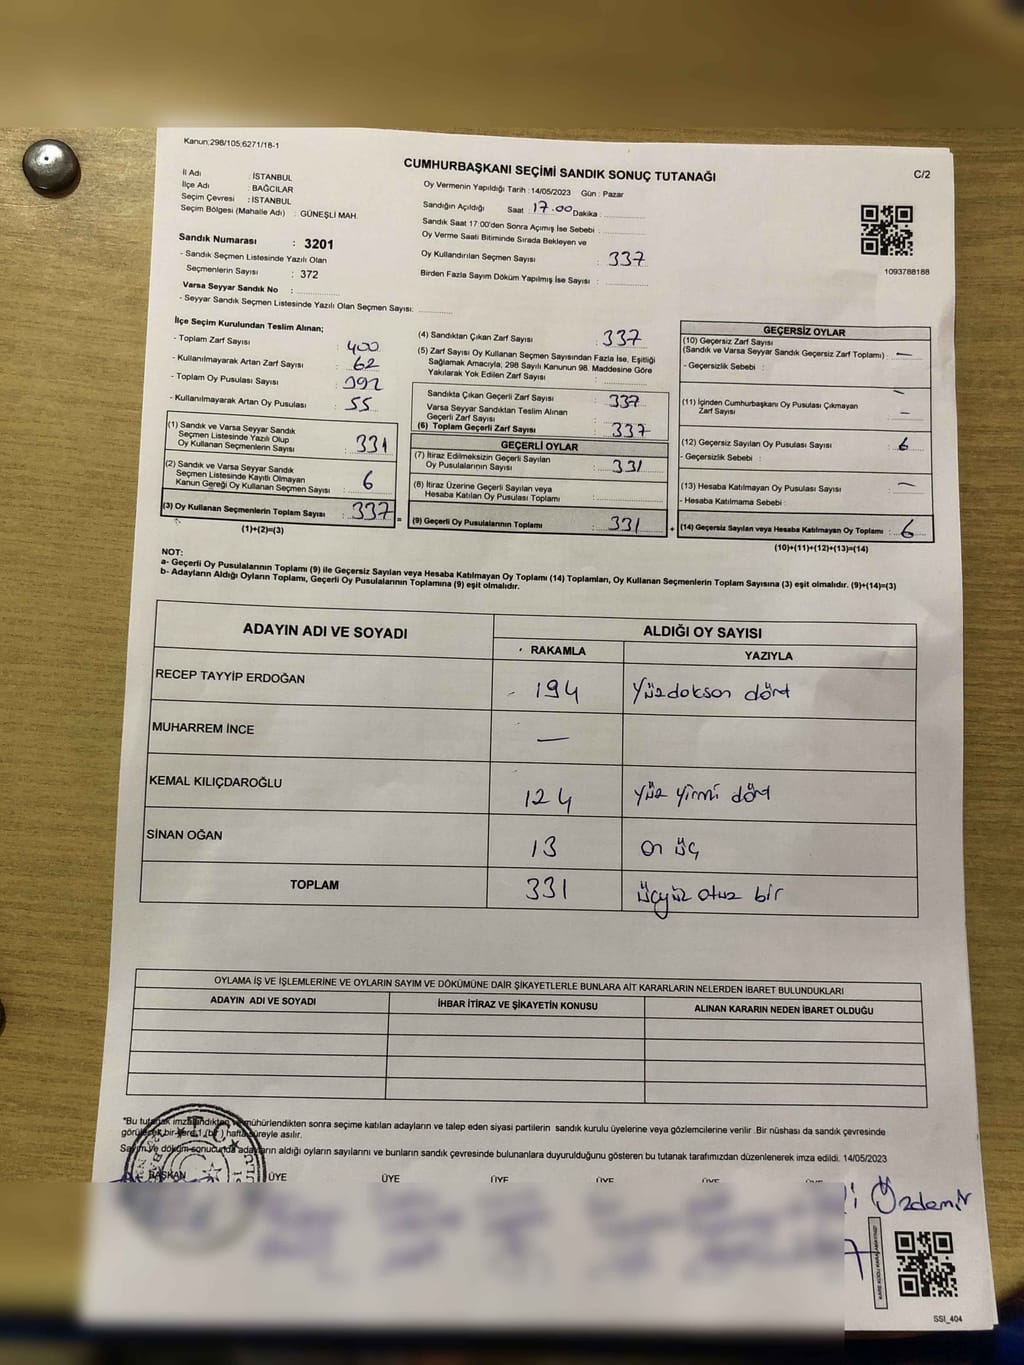 Kanun:298/105;6271/18-1
CUMHURBAŞKANI SEÇİMİ SANDIK SONUÇ TUTANAĞI
C/2
İl Adı : İSTANBUL
İlçe Adı : BAĞCILAR
Seçim Çevresi : İSTANBUL
Seçim Bölgesi (Mahalle Adı) : GÜNEŞLİ MAH.
Oy Vermenin Yapıldığı Tarih : 14/05/2023 Gün : Pazar
Sandığın Açıldığı Saat : 17.00 Dakika :
Sandık Saat 17:00'den Sonra Açımış İse Sebebi :
Oy Verme Saati Bitiminde Sırada Bekleyen ve
Oy Kullandırılan Seçmen Sayısı : 337
Birden Fazla Sayım Döküm Yapılmış İse Sayısı :
1093788188
Sandık Numarası : 3201
- Sandık Seçmen Listesinde Yazılı Olan
Seçmenlerin Sayısı : 372
Varsa Seyyar Sandık No :
- Seyyar Sandık Seçmen Listesinde Yazılı Olan Seçmen Sayısı:
İlçe Seçim Kurulundan Teslim Alınan;
- Toplam Zarf Sayısı : 400
- Kullanılmayarak Artan Zarf Sayısı : 62
- Toplam Oy Pusulası Sayısı : 392
- Kullanılmayarak Artan Oy Pusulası : 55
(1) Sandık ve Varsa Seyyar Sandık
Seçmen Listesinde Yazılı Olup
Oy Kullanan Seçmenlerin Sayısı : 331
(2) Sandık ve Varsa Seyyar Sandık
Seçmen Listesinde Kayıtlı Olmayan
Kanun Gereği Oy Kullanan Seçmen Sayısı : 6
(3) Oy Kullanan Seçmenlerin Toplam Sayısı : 337
(1)+(2)=(3)
(4) Sandıktan Çıkan Zarf Sayısı : 337
(5) Zarf Sayısı Oy Kullanan Seçmen Sayısından Fazla İse, Eşitliği
Sağlamak Amacıyla, 298 Sayılı Kanunun 98. Maddesine Göre
Yakılarak Yok Edilen Zarf Sayısı :
Sandıkta Çıkan Geçerli Zarf Sayısı : 337
Varsa Seyyar Sandıktan Teslim Alınan
Geçerli Zarf Sayısı :
(6) Toplam Geçerli Zarf Sayısı : 337
GEÇERLİ OYLAR
(7) İtiraz Edilmeksizin Geçerli Sayılan
Oy Pusulalarının Sayısı : 331
(8) İtiraz Üzerine Geçerli Sayılan veya
Hesaba Katılan Oy Pusulası Toplamı :
= (9) Geçerli Oy Pusulalarının Toplamı : 331
GEÇERSİZ OYLAR
(10) Geçersiz Zarf Sayısı
(Sandık ve Varsa Seyyar Sandık Geçersiz Zarf Toplamı) : —
- Geçersizlik Sebebi :
(11) İçinden Cumhurbaşkanı Oy Pusulası Çıkmayan
Zarf Sayısı : —
(12) Geçersiz Sayılan Oy Pusulası Sayısı : 6
- Geçersizlik Sebebi :
(13) Hesaba Katılmayan Oy Pusulası Sayısı : —
- Hesaba Katılmama Sebebi :
+ (14) Geçersiz Sayılan veya Hesaba Katılmayan Oy Toplamı : 6
(10)+(11)+(12)+(13)=(14)
NOT:
a- Geçerli Oy Pusulalarının Toplamı (9) ile Geçersiz Sayılan veya Hesaba Katılmayan Oy Toplamı (14) Toplamları, Oy Kullanan Seçmenlerin Toplam Sayısına (3) eşit olmalıdır. (9)+(14)=(3)
b- Adayların Aldığı Oyların Toplamı, Geçerli Oy Pusulalarının Toplamına (9) eşit olmalıdır.
ADAYIN ADI VE SOYADI
ALDIĞI OY SAYISI
RAKAMLA YAZIYLA
RECEP TAYYİP ERDOĞAN 194 Yüzdokson dört
MUHARREM İNCE —
KEMAL KILIÇDAROĞLU 124 Yüz yirmi dört
SİNAN OĞAN 13 on üç
TOPLAM 331 üçyüz otuz bir
OYLAMA İŞ VE İŞLEMLERİNE VE OYLARIN SAYIM VE DÖKÜMÜNE DAİR ŞİKAYETLERLE BUNLARA AİT KARARLARIN NELERDEN İBARET BULUNDUKLARI
ADAYIN ADI VE SOYADI İHBAR İTİRAZ VE ŞİKAYETİN KONUSU ALINAN KARARIN NEDEN İBARET OLDUĞU
*Bu tutanak imzalandıktan ve mühürlendikten sonra seçime katılan adayların ve talep eden siyasi partilerin sandık kurulu üyelerine veya gözlemcilerine verilir .Bir nüshası da sandık çevresinde
görülecek bir yere 1 (bir) hafta süreyle asılır.
Sayım ve döküm sonucunda adayların aldığı oyların sayılarını ve bunların sandık çevresinde bulunanlara duyurulduğunu gösteren bu tutanak tarafımızdan düzenlenerek imza edildi. 14/05/2023
BAŞKAN ÜYE ÜYE ÜYE ÜYE ÜYE
Özdemir
SSI_404